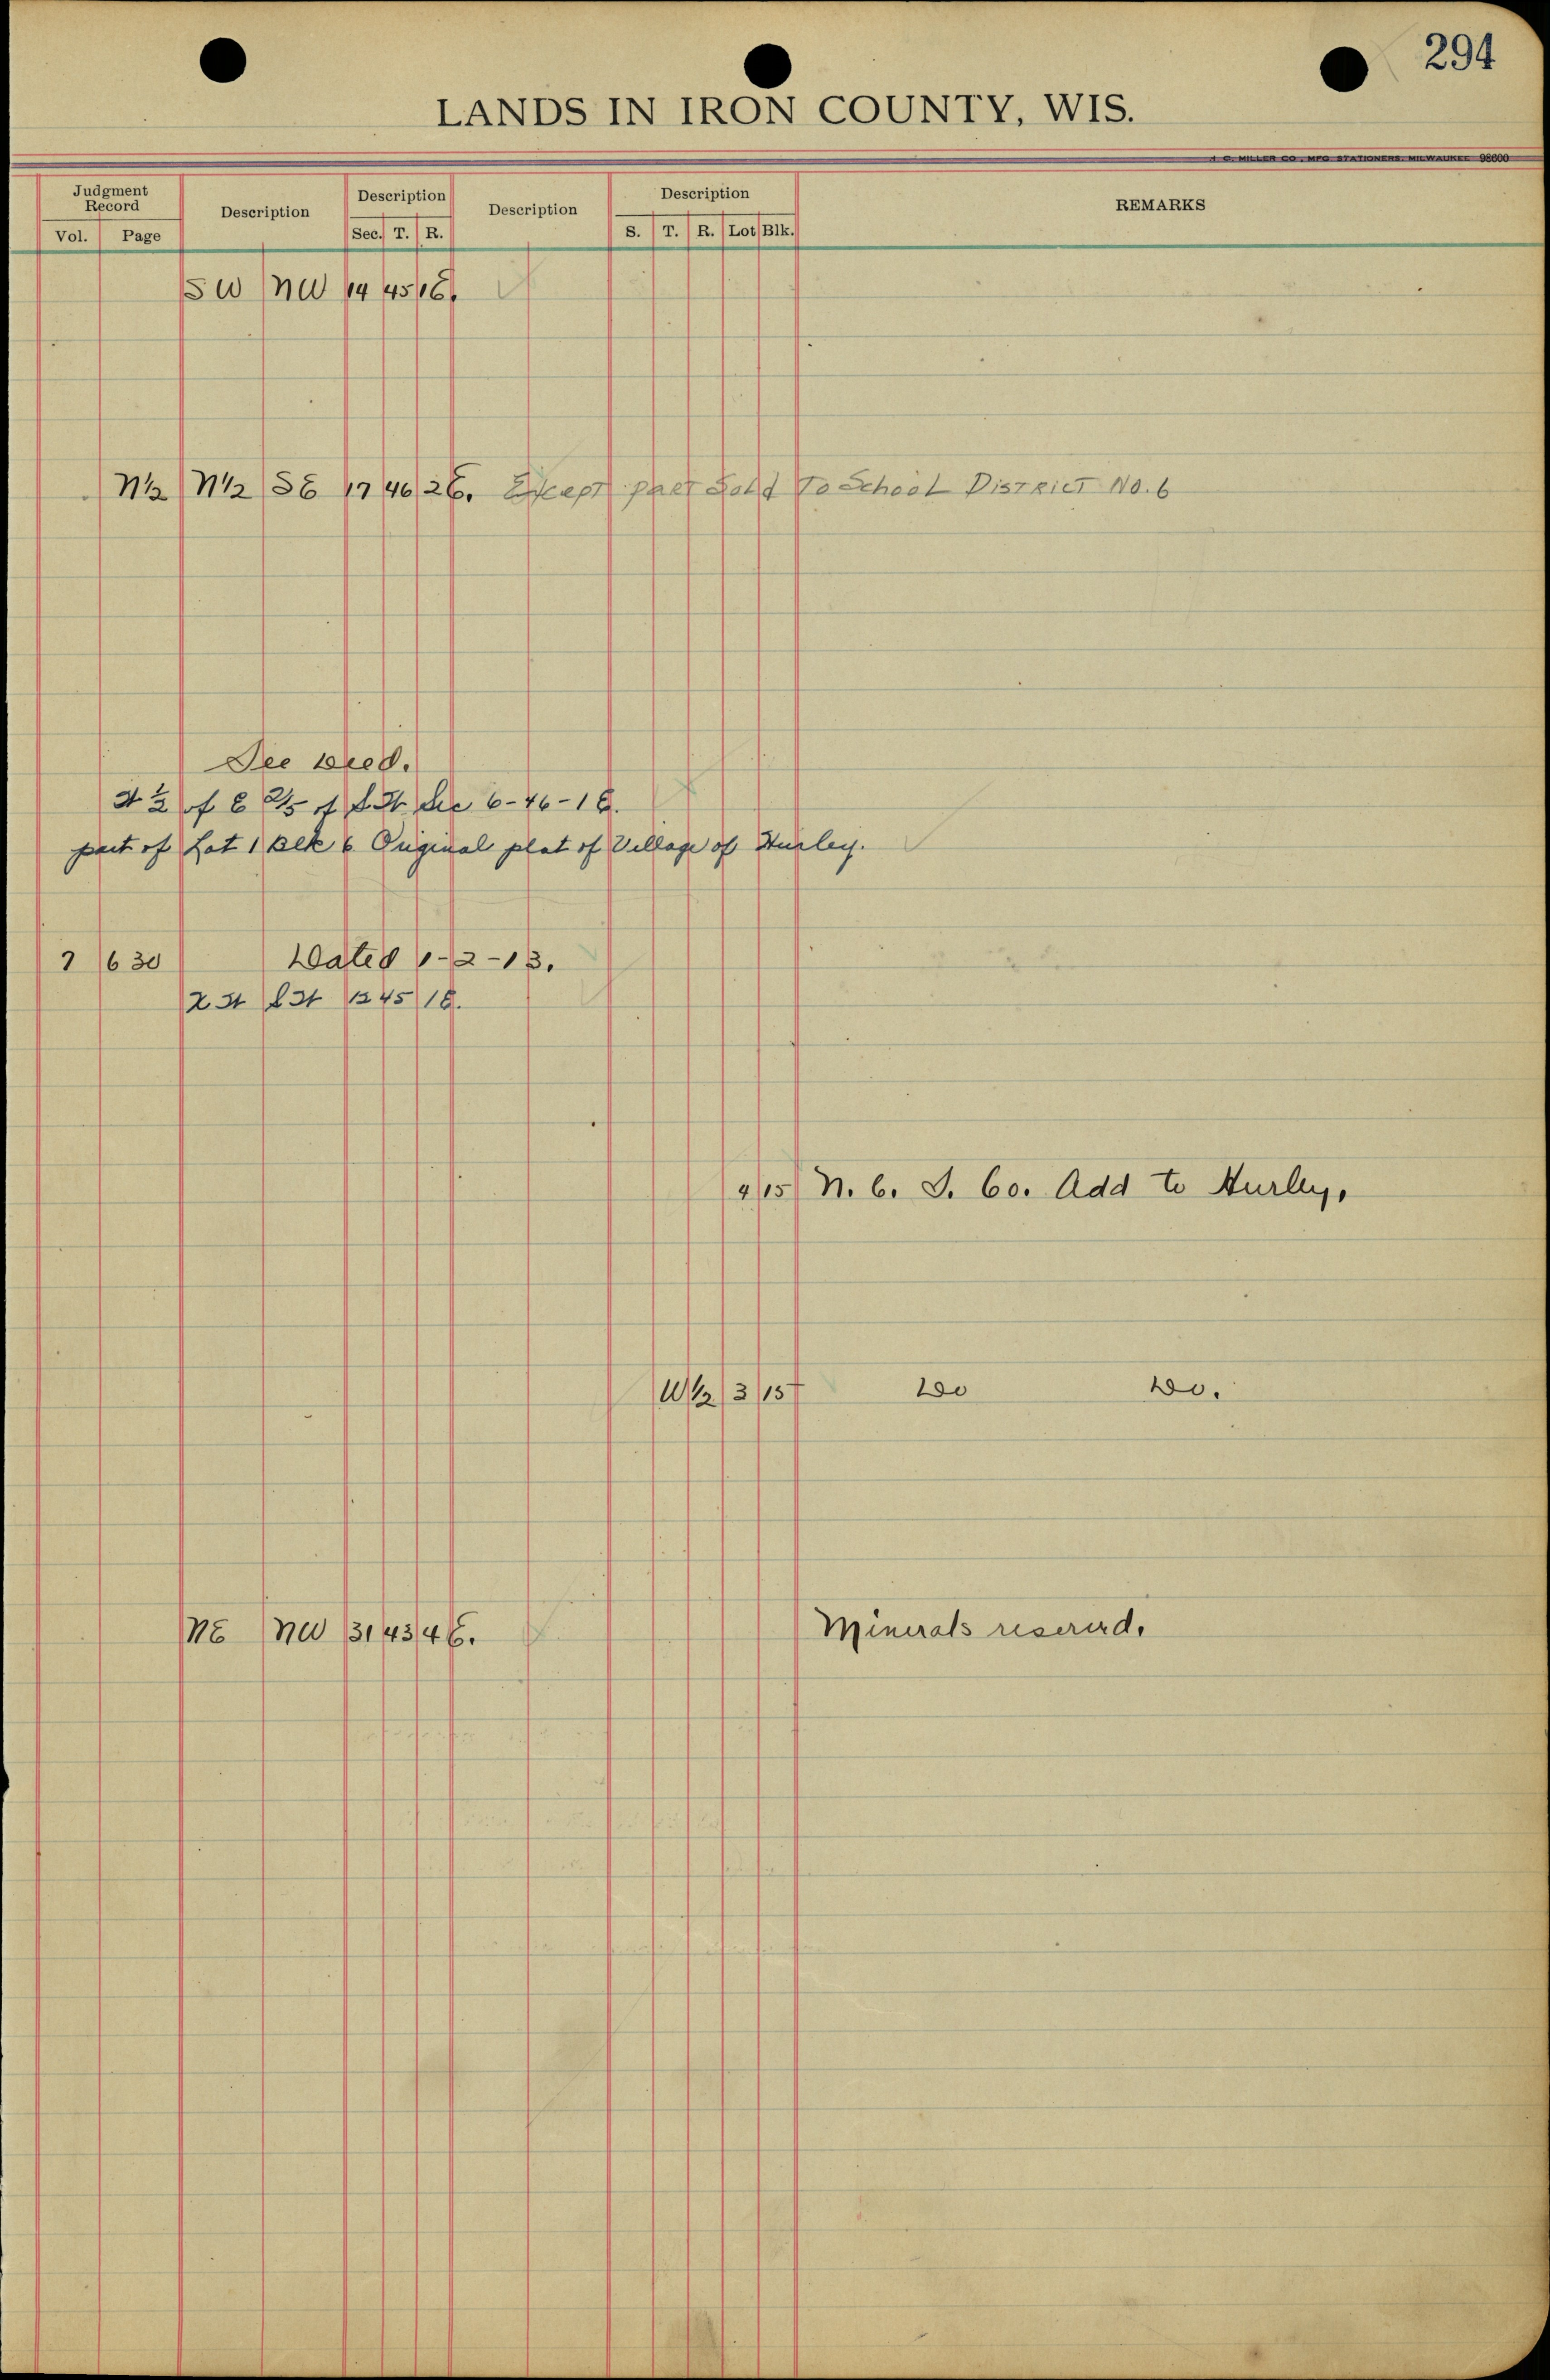 294
LANDS IN IRON COUNTY, WIS.
J. C. MILLER CO., MFG STATIONERS, MILWAUKEE 98600
Judgment Record Description Description Description Description REMARKS
Vol. Page Sec. T. R. S. T. R. Lot Blk.
SW NW 14 45 1E.
N½ N½ SE 17 46 2E. Except part Sold To School District No. 6
See Deed.
W ½ of E 2/5 of S.W. Sec 6-46-1E.
part of Lot 1 Blk 6 Original plat of Village of Hurley.
7 630 Dated 1-2-13.
SW 12 45 1E.
4 15 N. C. I. Co. Add to Hurley.
W½ 3 15 Do Do.
NE NW 31 43 4E. Minerals reserved.